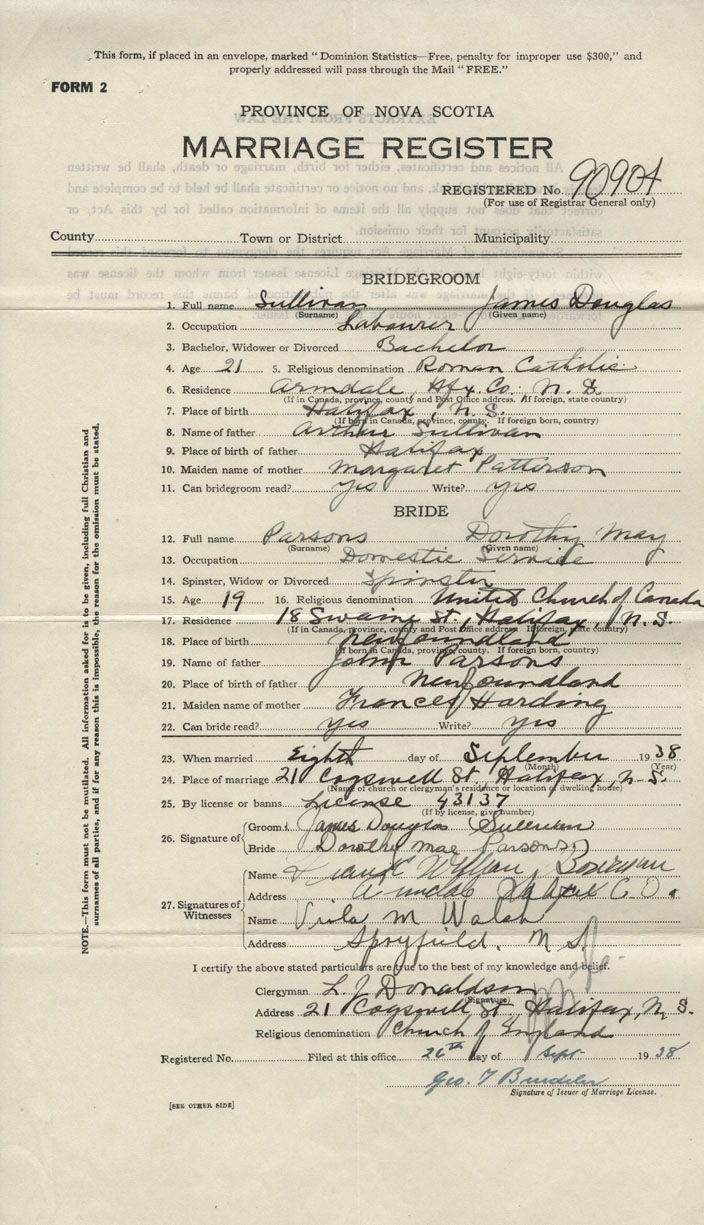 This form, if placed in an envelope, marked "Dominion Statistics—Free, penalty for improper use $300," and
properly addressed will pass through the Mail "FREE."
FORM 2
PROVINCE OF NOVA SCOTIA
MARRIAGE REGISTER
REGISTERED No.
(For use of Registrar General only)
County Town or District Municipality
BRIDEGROOM
1. Full name Sullivan James Douglas
(Surname) (Given name)
2. Occupation Labourer
3. Bachelor, Widower or Divorced Bachelor
4. Age 21 5. Religious denomination Roman Catholic
6. Residence Armdale, Hfx. Co. N.S.
(If in Canada, province, county and Post Office address. If foreign, state country)
7. Place of birth Halifax, N.S.
(If born in Canada, province, county. If foreign born, country)
8. Name of father Arthur Sullivan
9. Place of birth of father Halifax
10. Maiden name of mother Margaret Patterson
11. Can bridegroom read? yes Write? yes
BRIDE
12. Full name Parsons Dorothy May
(Surname) (Given name)
13. Occupation Domestic Service
14. Spinster, Widow or Divorced Spinster
15. Age 19 16. Religious denomination United Church of Canada
17. Residence 18 Swaine St., Halifax, N.S.
(If in Canada, province, county and Post Office address If foreign, state country)
18. Place of birth Newfoundland
(If born in Canada, province, county. If foreign born, country)
19. Name of father John Parsons
20. Place of birth of father Newfoundland
21. Maiden name of mother Frances Harding
22. Can bride read? yes Write? yes
23. When married Eighth day of September 1938
(Month) (Year)
24. Place of marriage 21 Cogswell St, Halifax, N.S.
(Name of church or clergyman's residence or location of dwelling house)
25. By license or banns License 43137
(If by license, give number)
26. Signature of
Groom James Douglas Sullivan
Bride Dorothy mae Parsons
27. Signatures of Witnesses
Name Bowman
Address Armdale Halifax CO.
Name Viola M Walsh
Address Spryfield. N S.
I certify the above stated particulars are true to the best of my knowledge and belief.
Clergyman L. J. Donaldson
(Signature)
Address 21 Cogswell St, Halifax, N.S.
Religious denomination Church of England
Registered No. Filed at this office 26th day of Sept. 1938
Geo. T
Signature of Issuer of Marriage License.
[SEE OTHER SIDE]
NOTE.—This form must not be mutilated. All information asked for is to be given, including full Christian and
surnames of all parties, and if for any reason this is impossible, the reason for the omission must be stated.